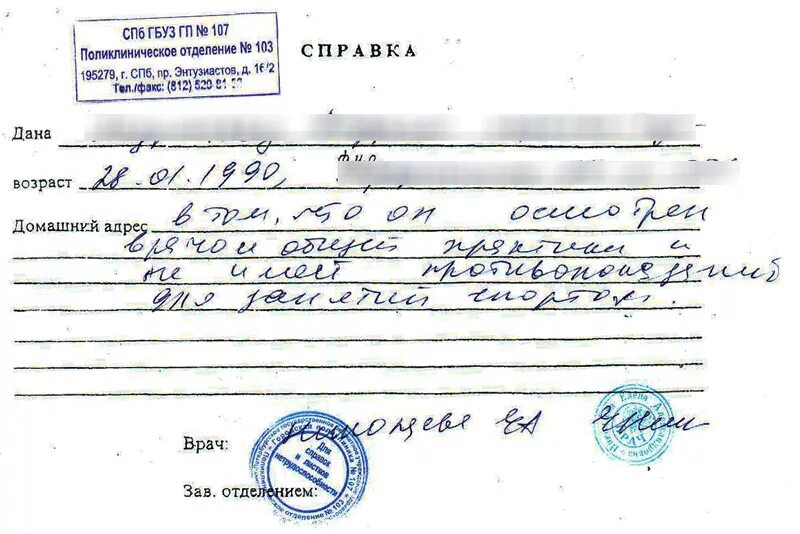 СПб ГБУЗ ГП № 107
Поликлиническое отделение № 103
195279, г. СПб, пр. Энтузиастов, д. 16/2
Тел./факс: (812) 520-81-
СПРАВКА
Дана
фио
возраст 28.01.1990,
Домашний адрес в том, что он осмотрен
врачом общей практики и
не имеет противопоказаний
для занятий спортом.
Врач: ЕА
Елена Александровна
ВРАЧ
Для
справок
и листков
нетрудоспособности
Городская поликлиника № 107
Поликлиническое отделение № 103
Зав. отделением: